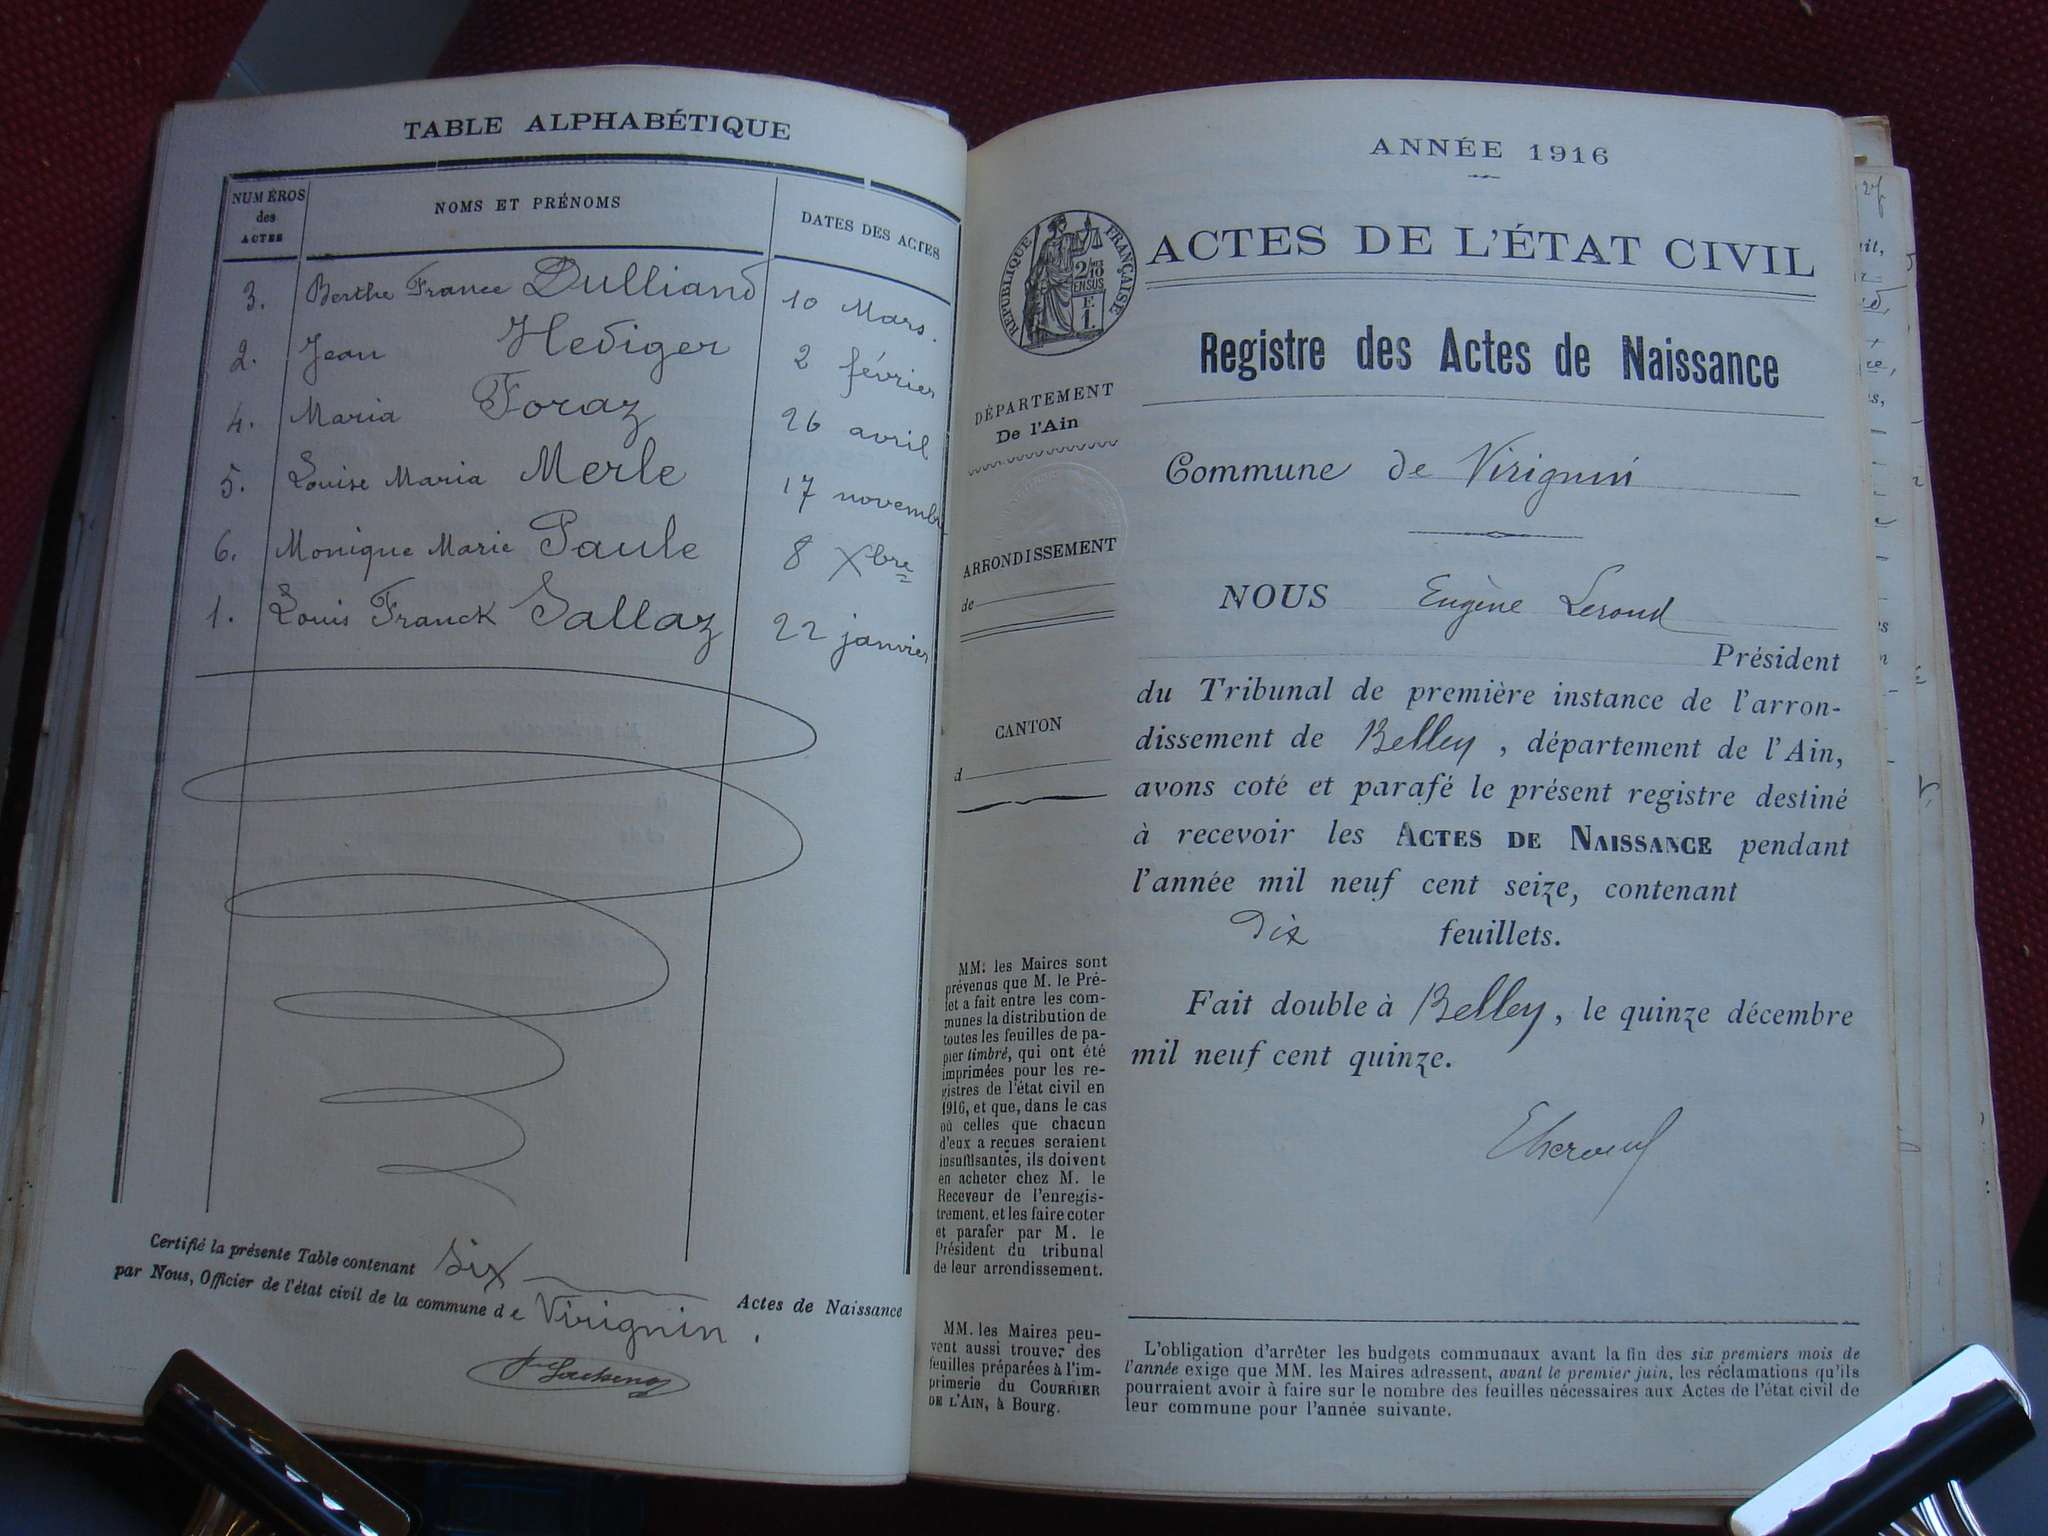 TABLE ALPHABÉTIQUE
NUMÉROS des ACTES
NOMS ET PRÉNOMS
DATES DES ACTES
3. Berthe France Dulliand 10 Mars.
2. Jean Hediger 2 février
4. Maria Foraz 26 avril
5. Louise Maria Merle 17 novembre
6. Monique Marie Paule 8 Xbre
1. Louis Franck Sallaz 22 janvier
Certifié la présente Table contenant six Actes de Naissance
par Nous, Officier de l'état civil de la commune de Virignin.
ANNÉE 1916
RÉPUBLIQUE FRANÇAISE
2/10 EN SUS
ACTES DE L'ÉTAT CIVIL
Registre des Actes de Naissance
DÉPARTEMENT
De l'Ain
ARRONDISSEMENT
de
CANTON
d
Commune de Virignin
NOUS Eugène Leroud
Président
du Tribunal de première instance de l'arron-
dissement de Belley, département de l'Ain,
avons coté et parafé le présent registre destiné
à recevoir les ACTES DE NAISSANCE pendant
l'année mil neuf cent seize, contenant
Dix feuillets.
Fait double à Belley, le quinze décembre
mil neuf cent quinze.
MM. les Maires sont
prévenus que M. le Pré-
fet a fait entre les com-
munes la distribution de
toutes les feuilles de pa-
pier timbré, qui ont été
imprimées pour les re-
gistres de l'état civil en
1916, et que, dans le cas
où celles que chacun
d'eux a reçues seraient
insuffisantes, ils doivent
en acheter chez M. le
Receveur de l'enregis-
trement, et les faire coter
et parafer par M. le
Président du tribunal
de leur arrondissement.
MM. les Maires peu-
vent aussi trouver des
feuilles préparées à l'im-
primerie du COURRIER
DE L'AIN, à Bourg.
L'obligation d'arrêter les budgets communaux avant la fin des six premiers mois de
l'année exige que MM. les Maires adressent, avant le premier juin, les réclamations qu'ils
pourraient avoir à faire sur le nombre des feuilles nécessaires aux Actes de l'état civil de
leur commune pour l'année suivante.